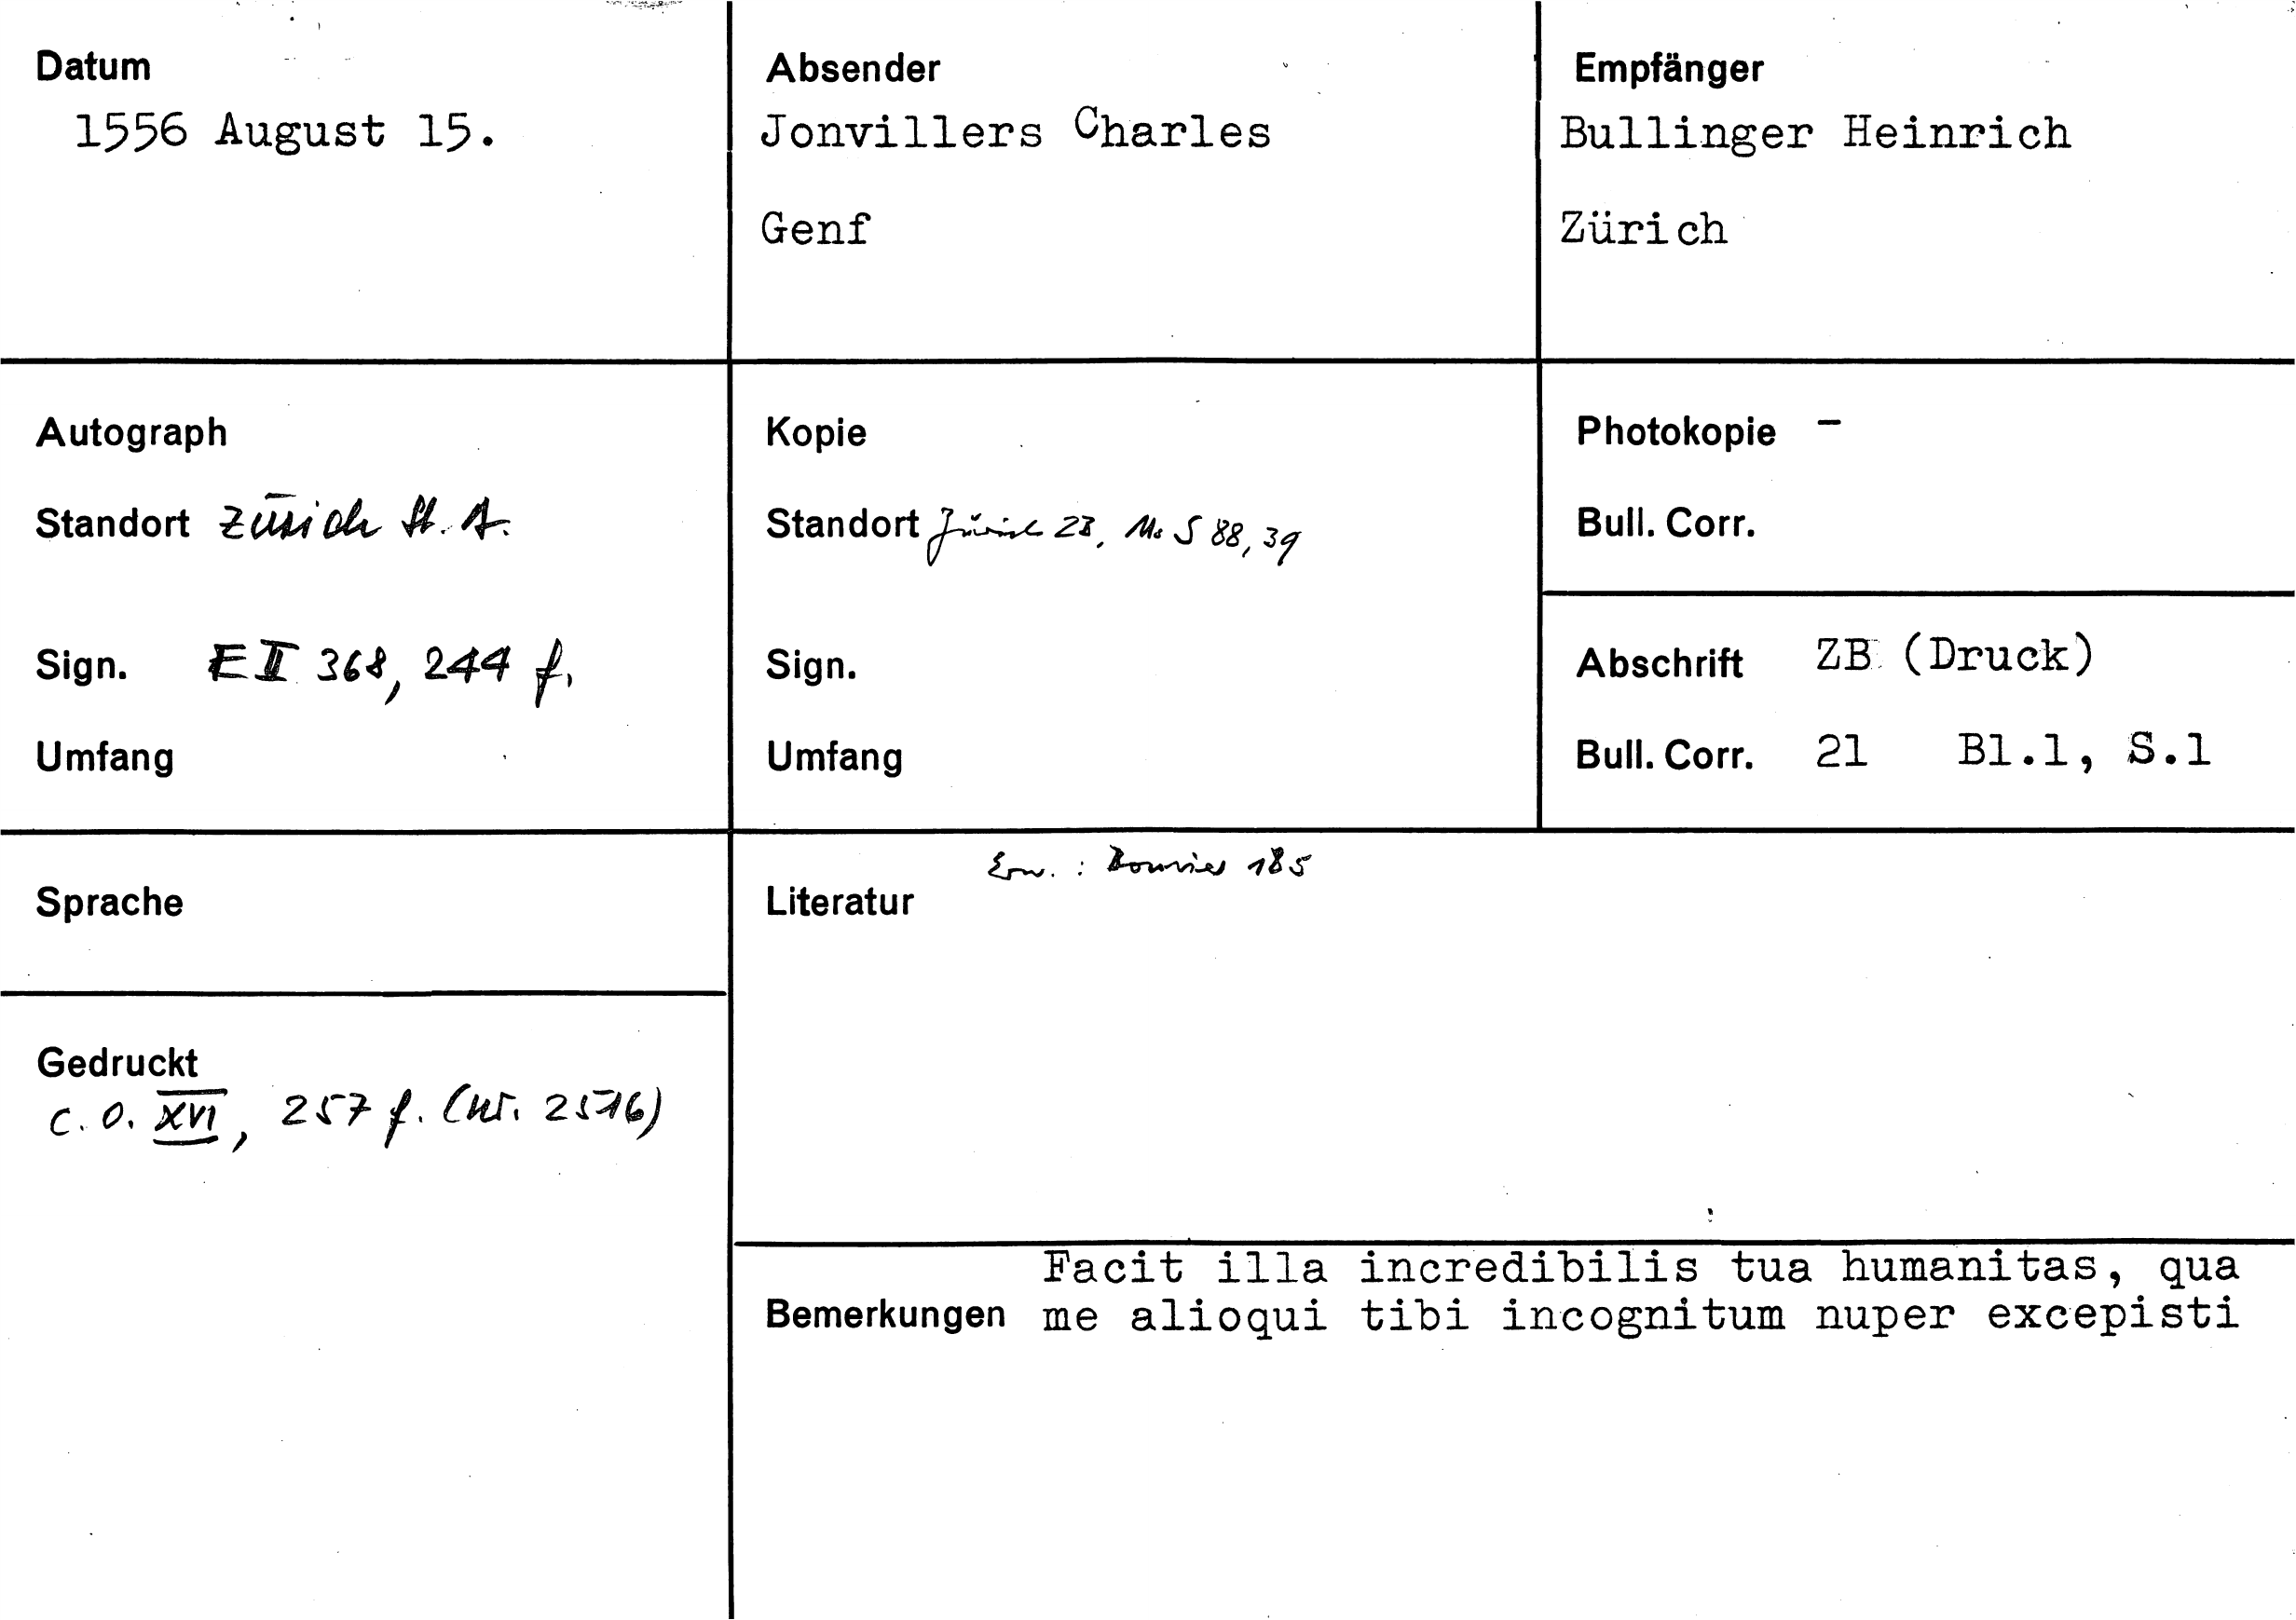 Datum
1556 August 15.
Absender
Jonvillers Charles
Genf
Empfänger
Bullinger Heinrich
Zürich
Autograph
Standort Zürich St. A.
Sign. E II 368, 244 f.
Umfang
Kopie
Standort Zürich ZB, Ms S 88, 39
Sign.
Umfang
Photokopie -
Bull. Corr.
Abschrift ZB (Druck)
Bull. Corr. 21 Bl.1, S.1
Sprache
Gedruckt
C. O. XVI, 257 f. (Nr. 2516)
Erw.: 185
Literatur
Facit illa incredibilis tua humanitas, qua
Bemerkungen me alioqui tibi incognitum nuper excepisti